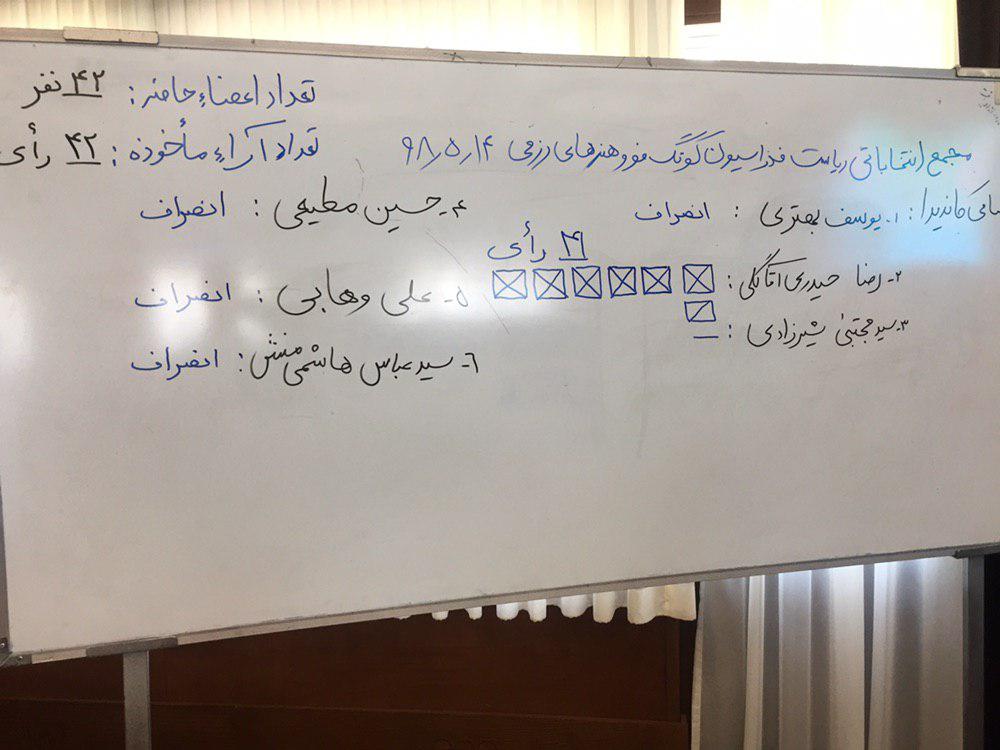 تعداد اعضاء حاضر: ۴۲ نفر
تعداد آراء مأخوذه: ۴۲ رأی
مجمع انتخاباتی ریاست فدراسیون کونگ فو و هنرهای رزمی ۹۸٫۵٫۱۴
کاندیدا: ۱- یوسف بهتری: انصراف
۴۱ رأی
۲- رضا حیدری اتاکلی:
۳- سید مجتبی شیرزادی: –
۴- حسین مطیعی: انصراف
۵- علی وهابی: انصراف
۶- سید عباس هاشمی منش: انصراف